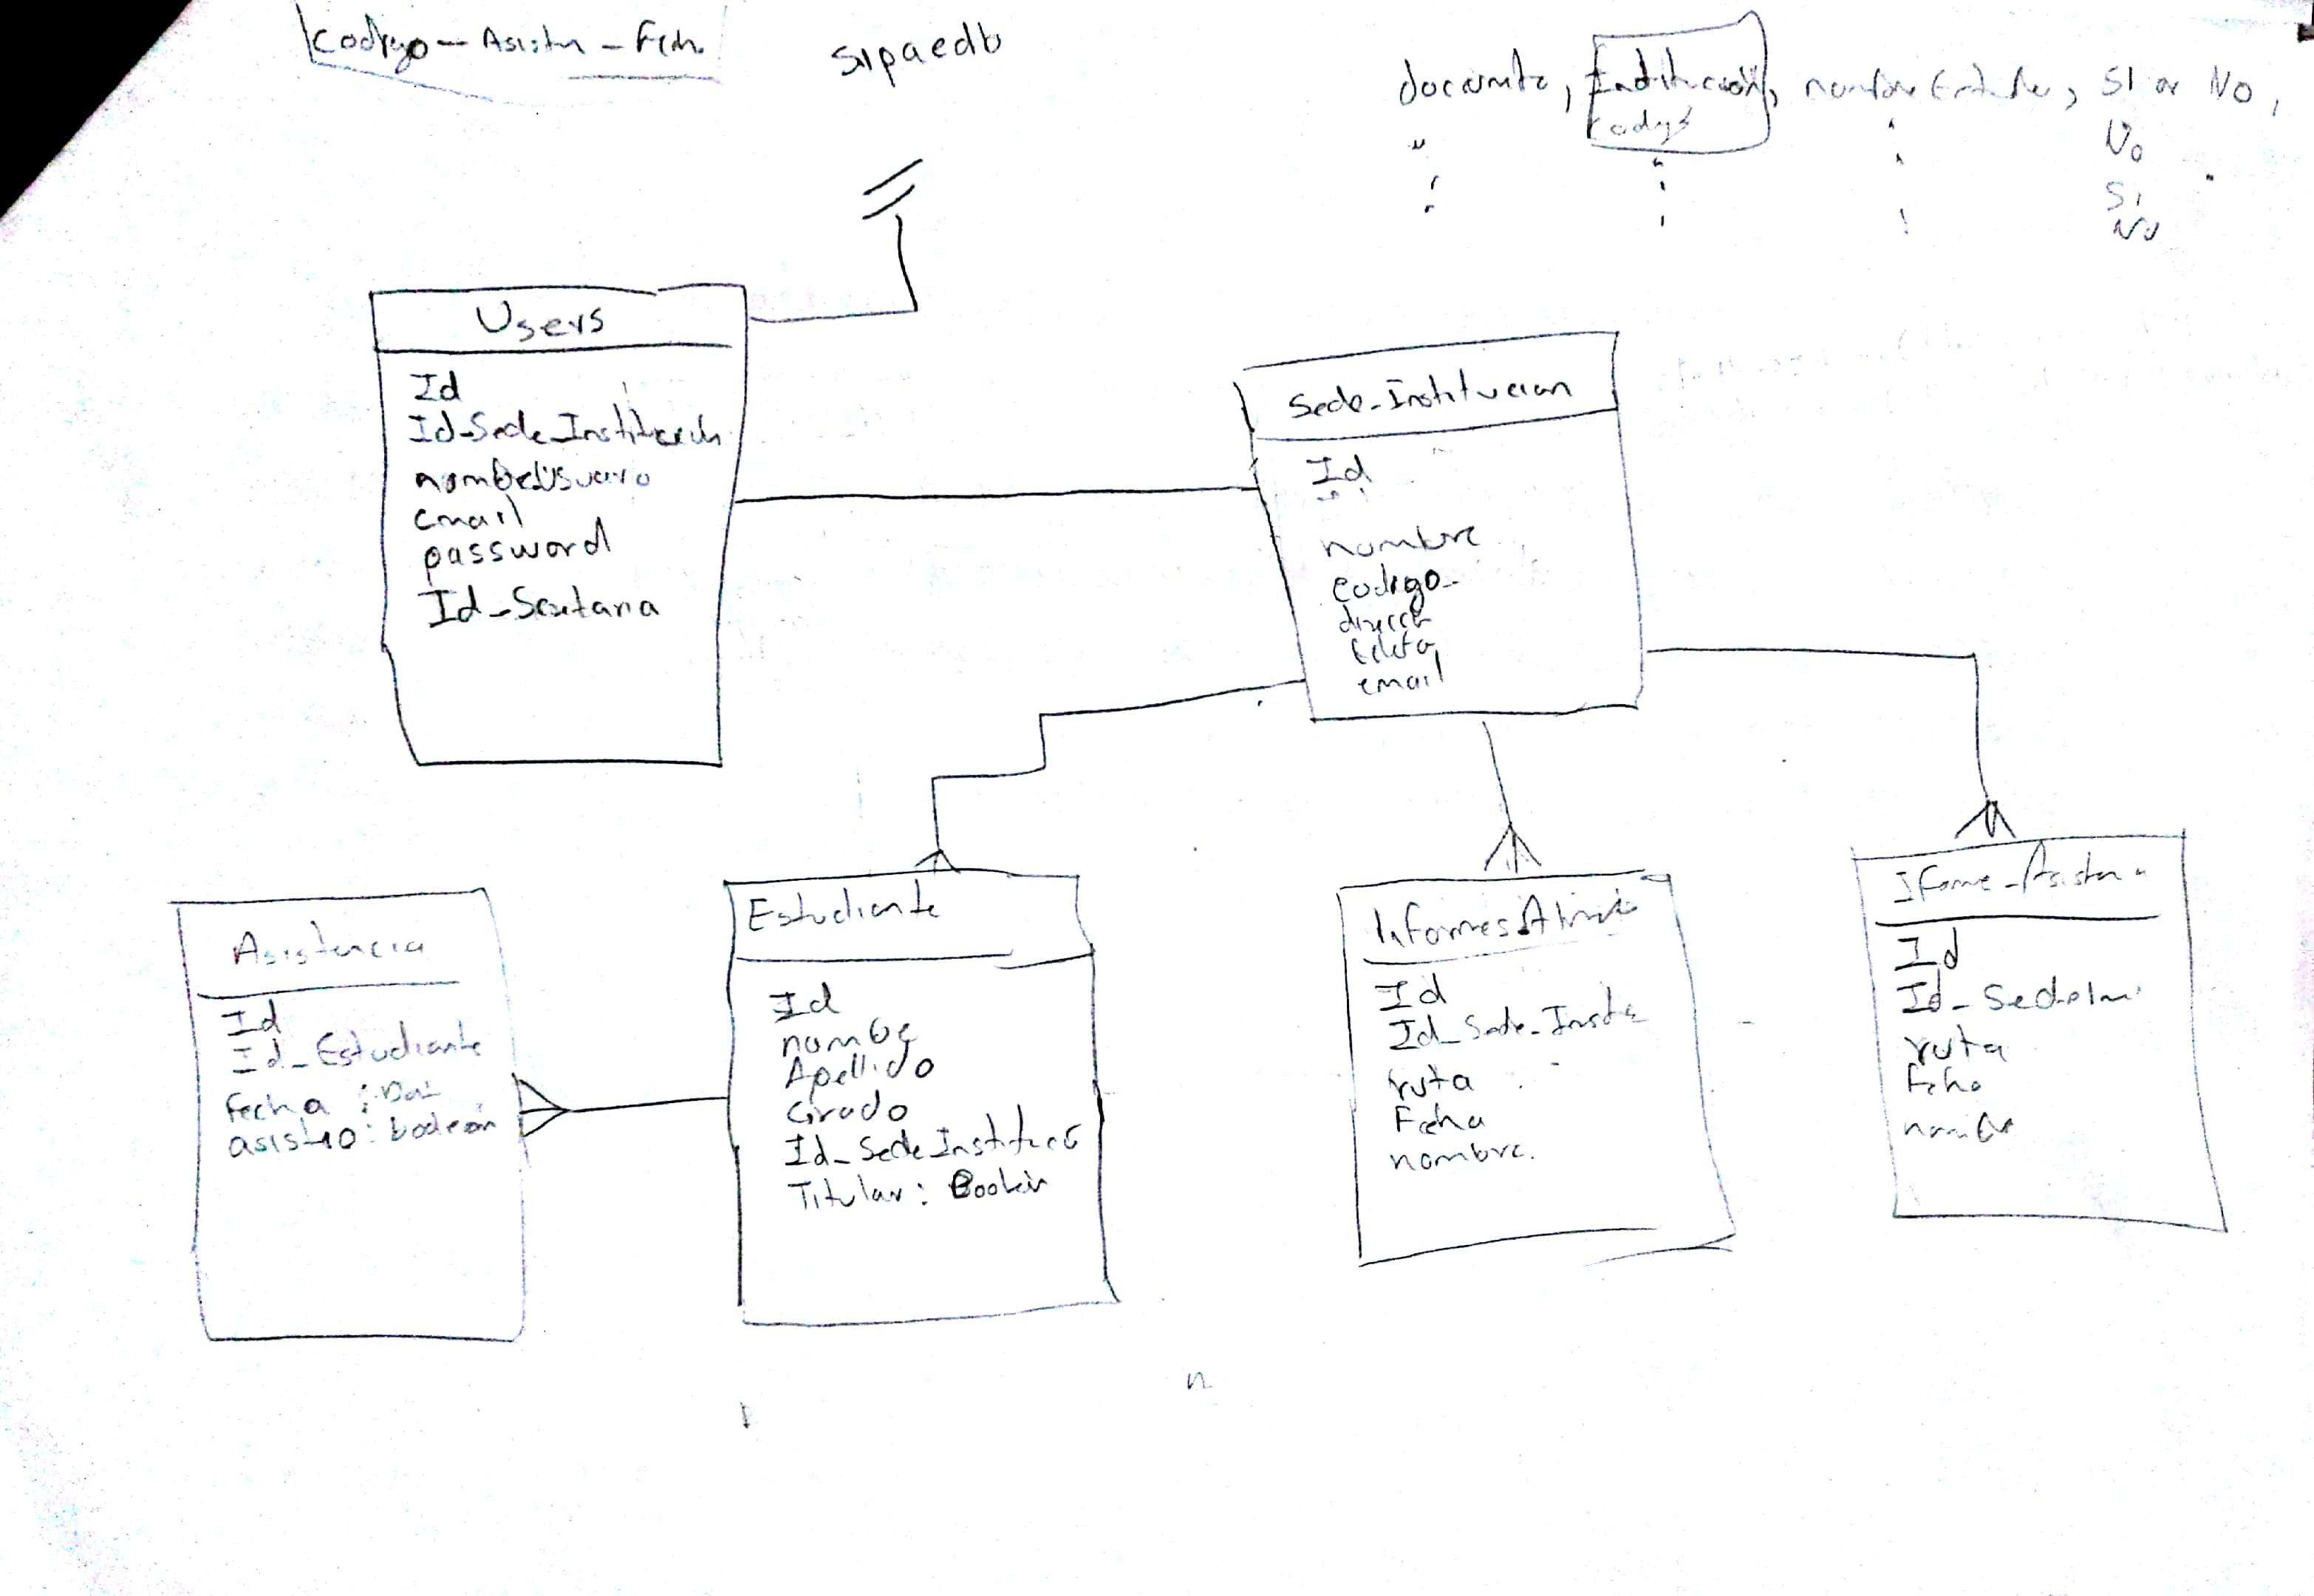 Codigo - Asisten - Fech
sipaedb
documto, Institucion, nombre Estud, SI or No,
codigo
No
Si
No
Users
Id
Id_Sede_Institucion
nombreUsuario
email
password
Id_Secretaria
Sede_Institucion
Id
nombre
codigo
direcc
telefo
email
Asistencia
Id
Id_Estudiante
fecha : Dat
asistio: boolean
Estudiante
Id
nombre
Apellido
Grado
Id_SedeInstituc
Titular: Boolean
Informes
Id
Id_Sede_Instit
ruta
Fecha
nombre.
IForme_Asisten
Id
Id_SedeIn
ruta
Fcha
nombre
n